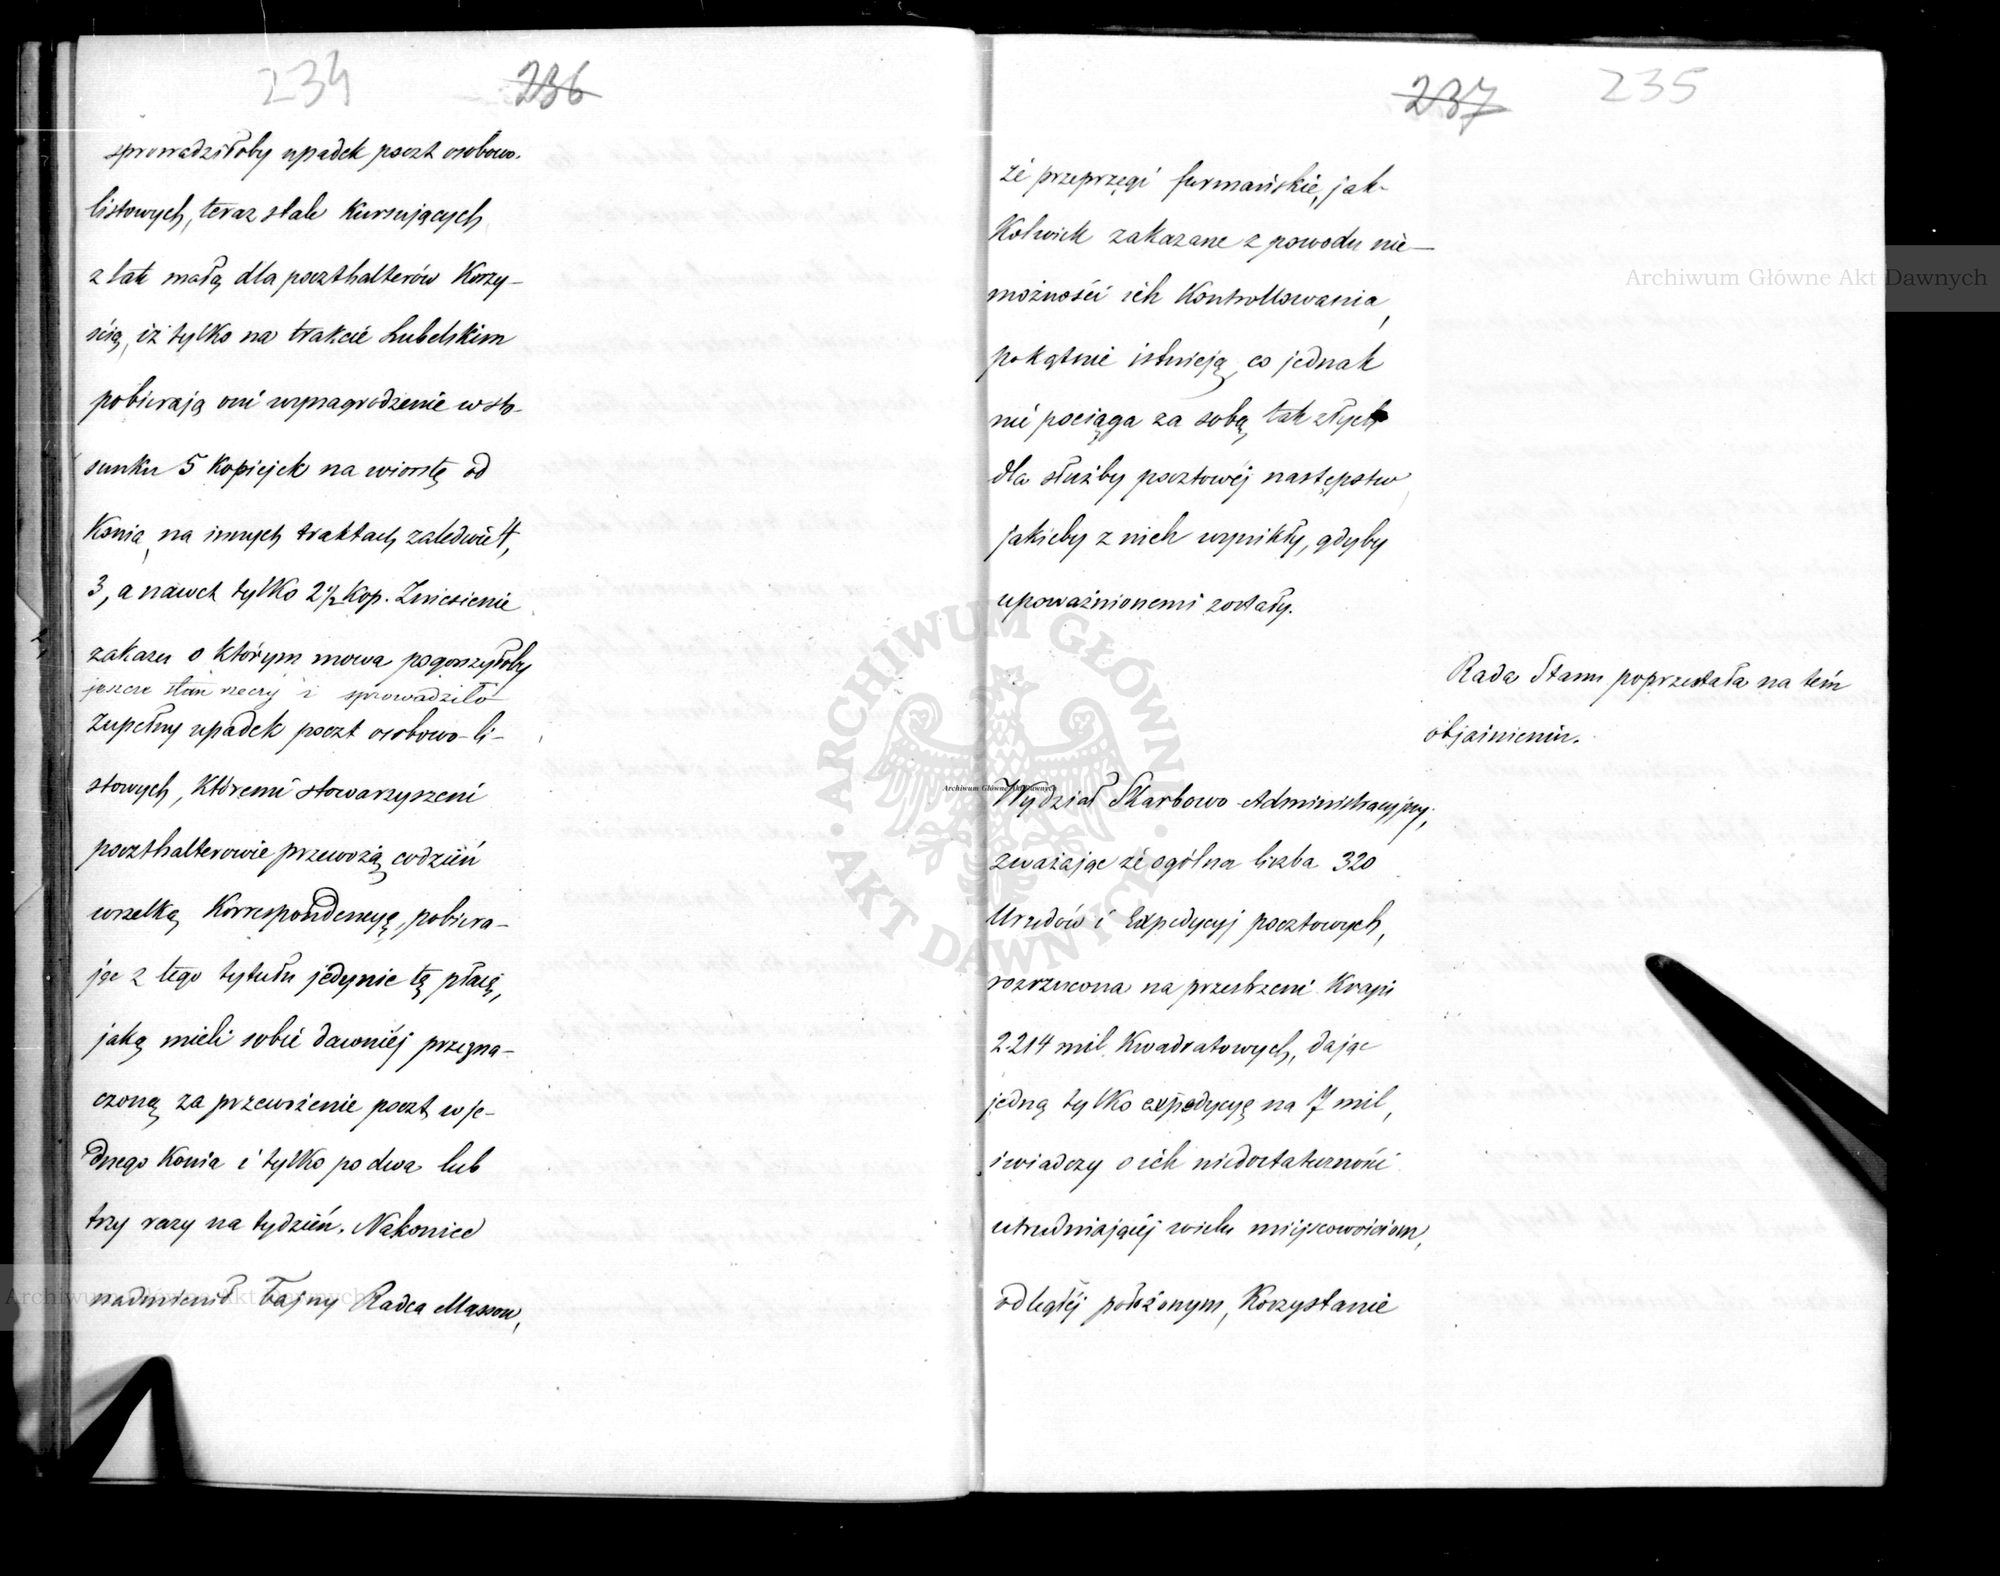 234 236
sprowadziłoby upadek poczt osobowo-
listowych, teraz stale kursujących
z tak małą dla poczthalterów korzy-
ścią, iż tylko na trakcie Lubelskim
pobierają oni wynagrodzenie w sto-
sunku 5 kopiejek na wiorstę od
konia, na innych traktach zaledwie 4,
3, a nawet tylko 2 1/2 kop. Zniesienie
zakazu o którym mowa pogorszyłoby
jeszcze stan rzeczy i sprowadziło
zupełny upadek poczt osobowo-li-
stowych, któremi stowarzyszeni
poczthalterowie przewożą codzień
wszelką korrespondencyę, pobiera-
jąc z tego tytułu jedynie tę płacę,
jaką mieli sobie dawniéj przezna-
czoną za przewożenie poczt w je-
dnego konia i tylko po dwa lub
trzy razy na tydzień. Nakoniec
nadmienił Tajny Radca Masson,
237 235
że przeprzęgi furmańskie, jak-
kolwiek zakazane z powodu nie-
możności ich kontrollowania,
pokątnie istnieją, co jednak
nie pociąga za sobą tak złych
dla służby pocztowéj następstw
jakieby z nich wynikły, gdyby
upoważnionemi zostały.
Rada Stanu poprzestała na tém
objaśnieniu.
Wydział Skarbowo-Administracyjny,
zważając że ogólna liczba 320
Urzędów i Expedycyj pocztowych,
rozrzucona na przestrzeni Kraju
2.214 mil kwadratowych, dając
jedną tylko expedycyę na 7 mil,
świadczy o ich niedostateczności
utrudniającéj wielu miejscowościom,
odległéj położonym, korzystanie
Archiwum Główne Akt Dawnych
Archiwum Główne Akt Dawnych
Archiwum Główne Akt Dawnych
ARCHIWUM GŁÓWNE AKT DAWNYCH